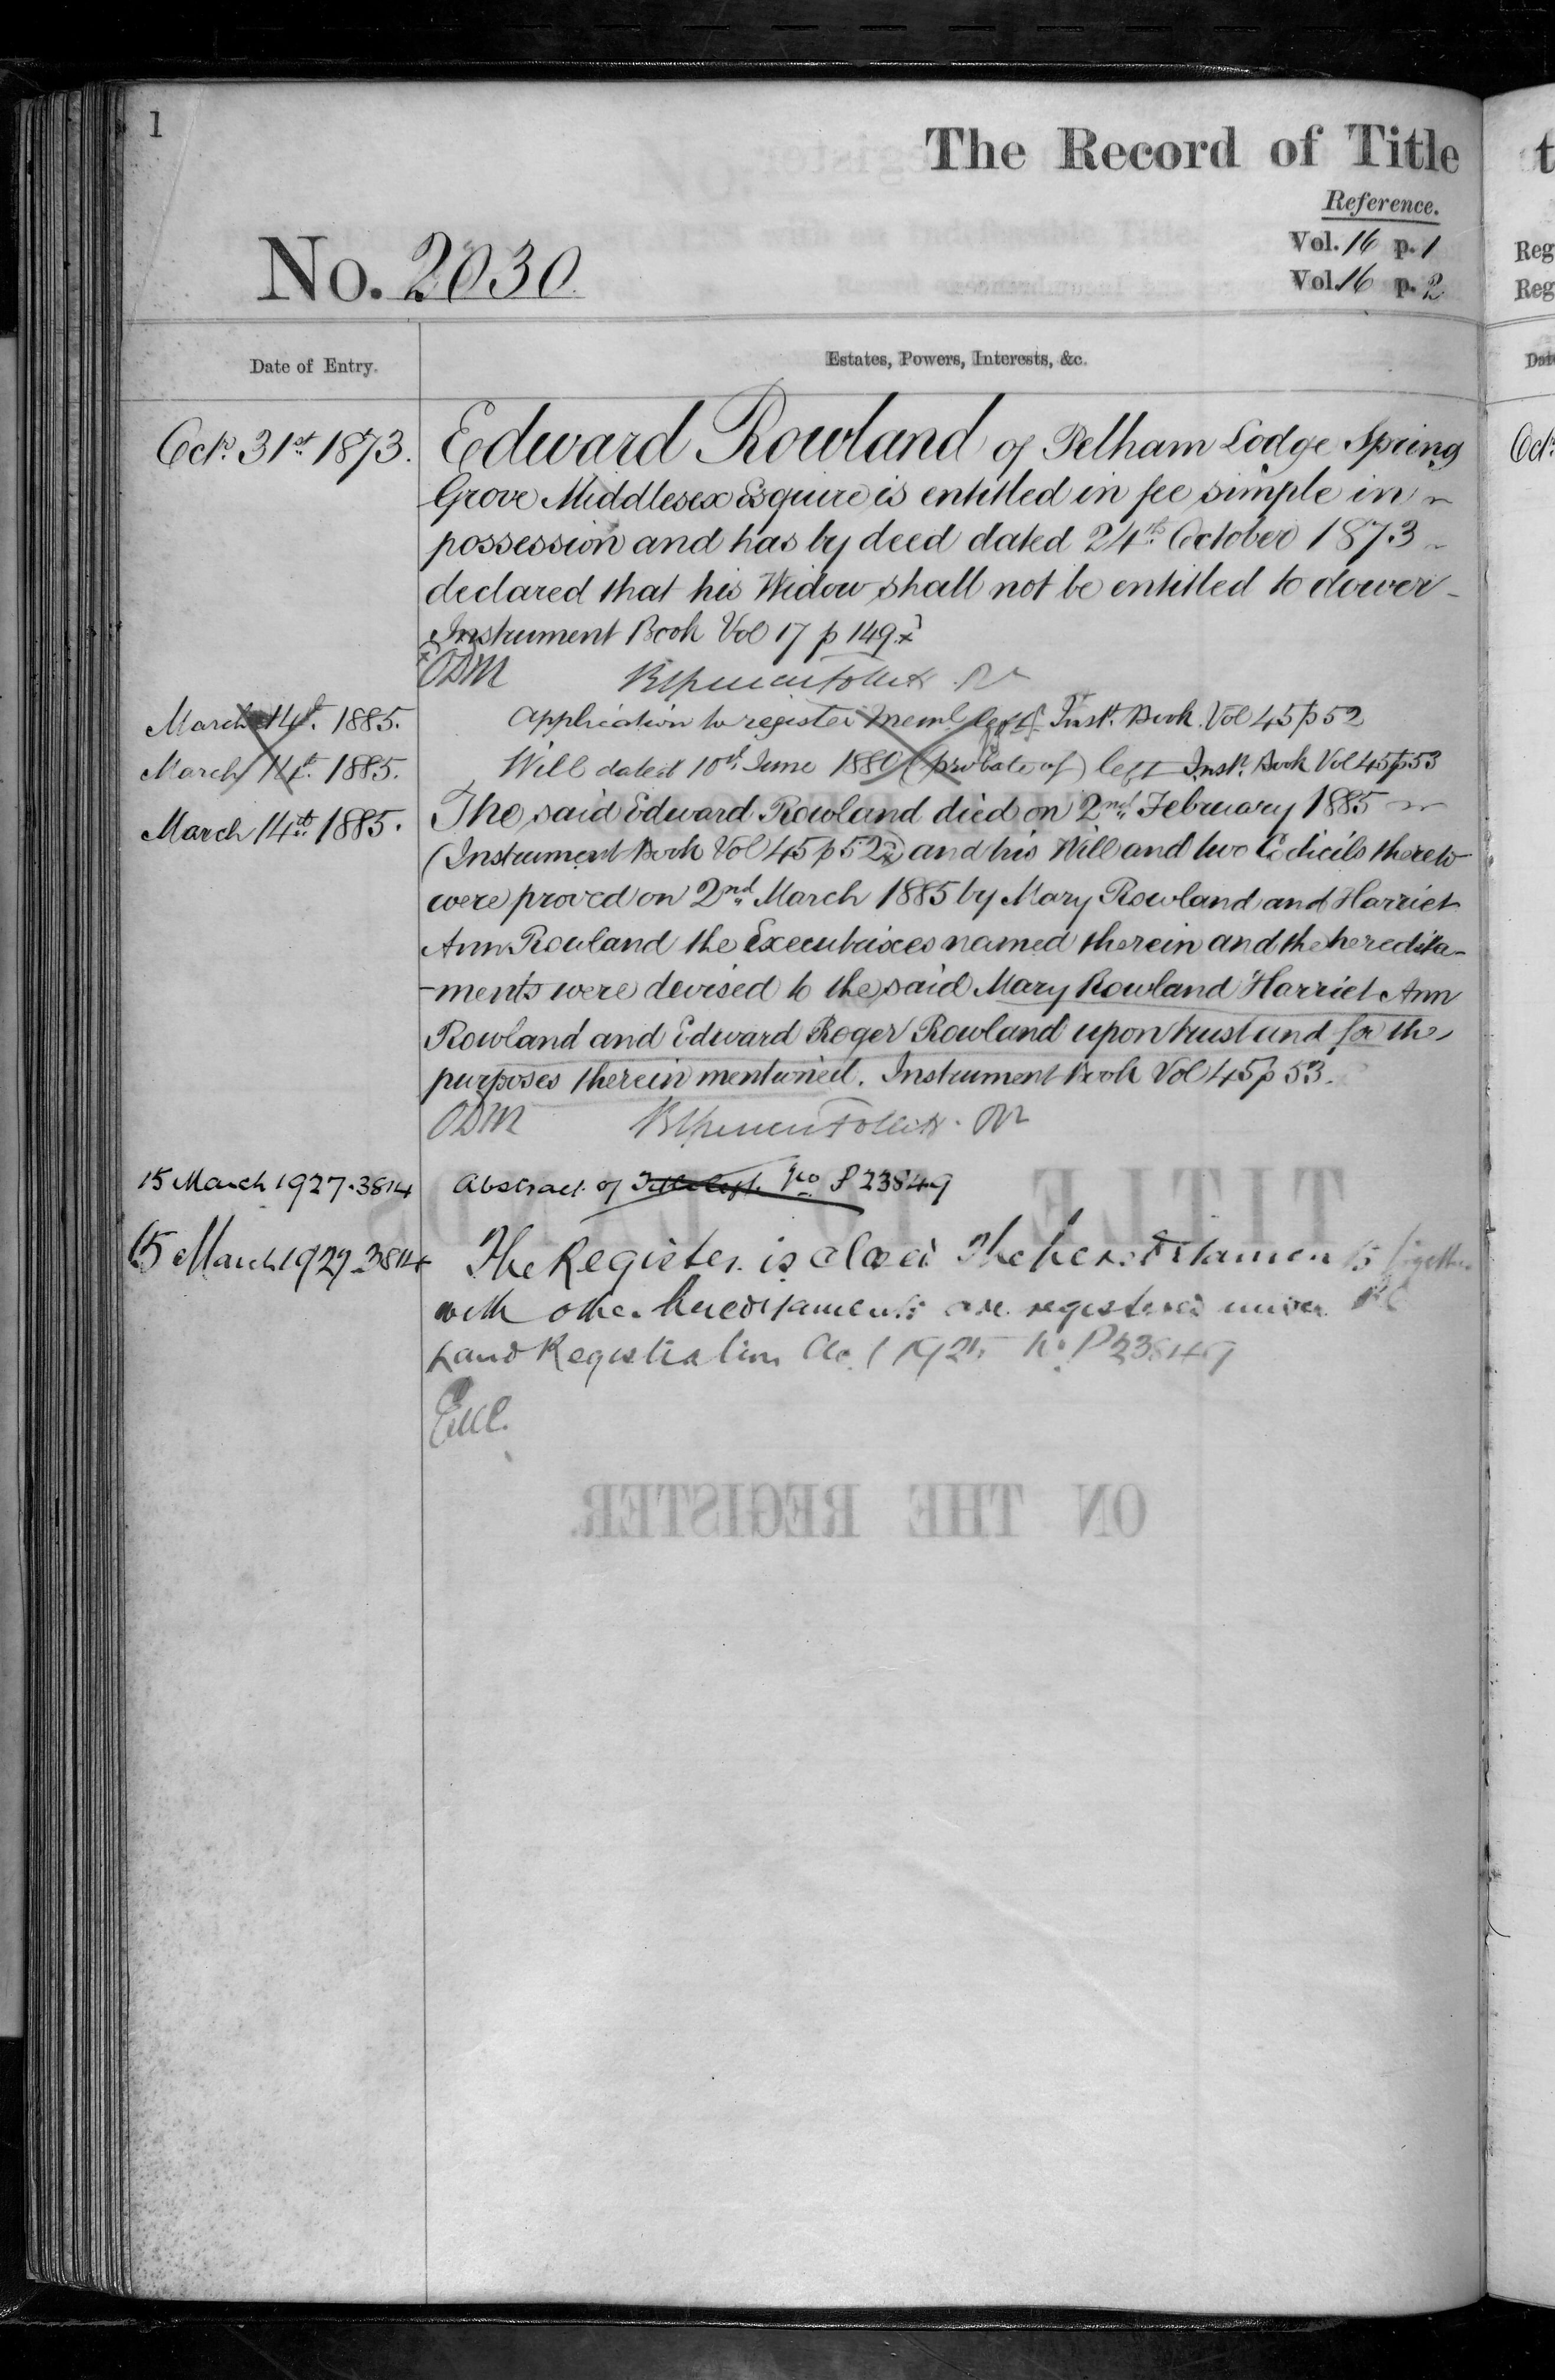 1
The Record of Title
Reference.
Vol. 16 p. 1
No. 2030
Vol. 16 p. 2
Date of Entry.
Estates, Powers, Interests, &c.
Octr. 31st 1873.
Edward Rowland of Pelham Lodge Spring
Grove Middlesex Esquire is entitled in fee simple in
possession and has by deed dated 24th October 1873
declared that his Widow shall not be entitled to dower
Instrument Book Vol 17 p 149
ODM
March 14th. 1885.
Application to register Meml left Inst. Book Vol 45 p 52
March 14th. 1885.
Will dated 10th June 1880 (probate of) left Inst. Book Vol 45 p 53
March 14th 1885.
The said Edward Rowland died on 2nd February 1885
(Instrument Book Vol 45 p 52) and his Will and two Codicils thereto
were proved on 2nd March 1885 by Mary Rowland and Harriet
Ann Rowland the Executrixes named therein and the heredita-
-ments were devised to the said Mary Rowland Harriet Ann
Rowland and Edward Roger Rowland upon trust and for the
purposes therein mentioned. Instrument Book Vol 45 p 53.
ODM
15 March 1927. 3814
Abstract of Title left No P 23849
15 March 1927. 3814
The Register is closed The hereditaments together
with other hereditaments are registered under the
Land Registration Act 1925 No. P 23849
TITLE TO LANDS
ON THE REGISTER.
t
Reg
Reg
Date
Octr